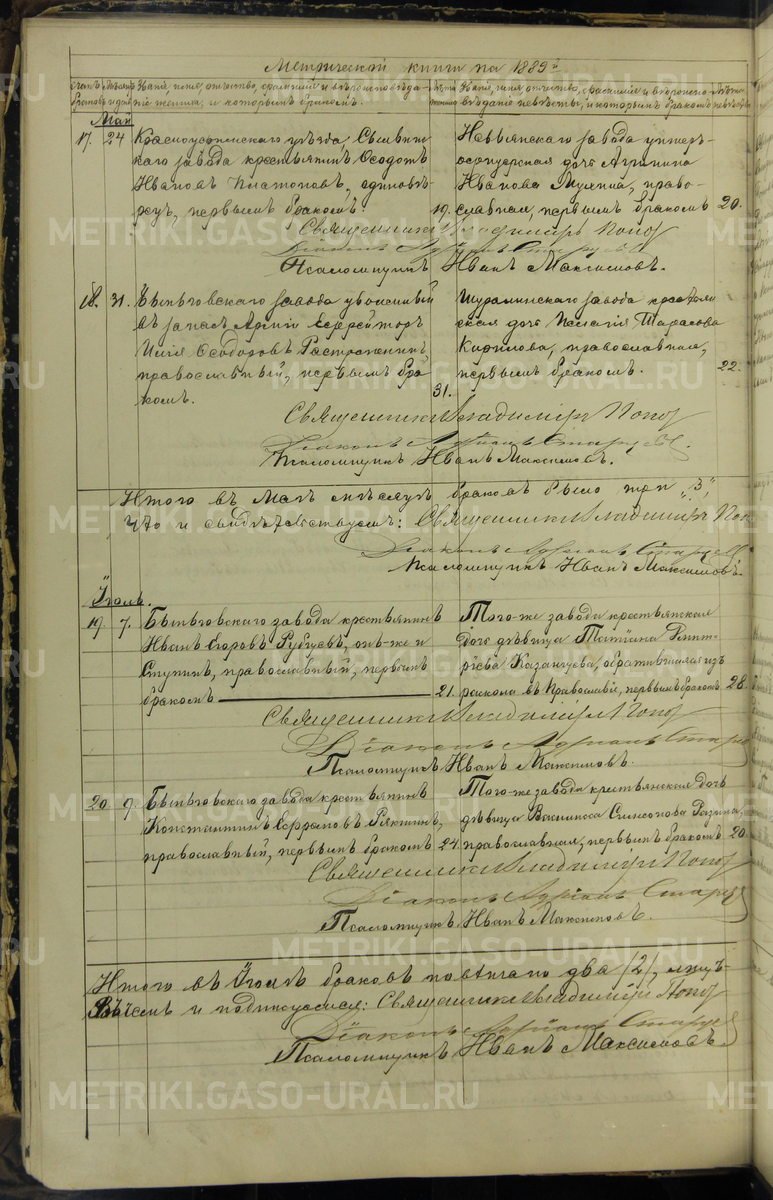 Метрической книги на 1889й
Счетъ Мѣсяцъ Имя, отчество, фамилія и вѣроисповѣда- Лѣта Имя, отчество, фамилія и вѣроиспо- Лѣта
браковъ и день ніе жениха, и которымъ бракомъ. жениха вѣданіе невѣсты, и которымъ бракомъ невѣсты
Май
17. 24 Красноуфимскаго уѣзда, Сылвин-
скаго завода крестьянинъ Ѳеодотъ
Ивановъ Платоновъ, единовѣ-
рецъ, первымъ бракомъ. 19.
Невьянскаго завода унтеръ-
офицерская дочь Агрипина
Иванова, право-
славная, первымъ бракомъ 20.
Священникъ Владиміръ Попов
Діаконъ Адріанъ Старцев
Псаломщикъ Иванъ Максимовъ.
18. 31. Быньговскаго завода уволенный
въ запасъ Арміи Ефрейторъ
Илія Ѳеодоровъ
православный, первымъ бра-
комъ. 31.
Шуралинскаго завода крестьян-
ская дочь Пелагія Тарасова
православная,
первымъ бракомъ. 22.
Священникъ Владиміръ Попов
Діаконъ Адріанъ Старцев
Псаломщикъ Иванъ Максимовъ.
Итого въ Маѣ мѣсяцѣ браковъ было три "3",
что и свидѣтельствуемъ: Священникъ Владиміръ Поп
Діаконъ Адріанъ Старцев
Псаломщикъ Иванъ Максимовъ.
Іюль.
19. 7. Быньговскаго завода крестьянинъ
Иванъ Егоровъ Рубцевъ, онъ-же и
Ступинъ, православный, первымъ
бракомъ 21.
Того-же завода крестьянская
дочь дѣвица Татіана Димит-
ріева Казанцева, обратившаяся изъ
раскола въ Православіе, первымъ бракомъ 28.
Священникъ Владиміръ Попов
Діаконъ Адріанъ Старц
Псаломщикъ Иванъ Максимовъ.
20. 9. Быньговскаго завода крестьянинъ
Константинъ Ефремовъ
православный, первымъ бракомъ 24.
Того-же завода крестьянская дочь
дѣвица Василиса Симеонова Разина,
православная, первымъ бракомъ 20.
Священникъ Владиміръ Попов
Діаконъ Адріанъ Старцев
Псаломщикъ Иванъ Максимовъ.
Итого въ Іюлѣ браковъ повѣнчано два /2/,
и подписуемся: Священникъ Владиміръ Попов
Діаконъ Адріанъ Старцев
Псаломщикъ Иванъ Максимовъ.
METRIKI.GASO-URAL.RU